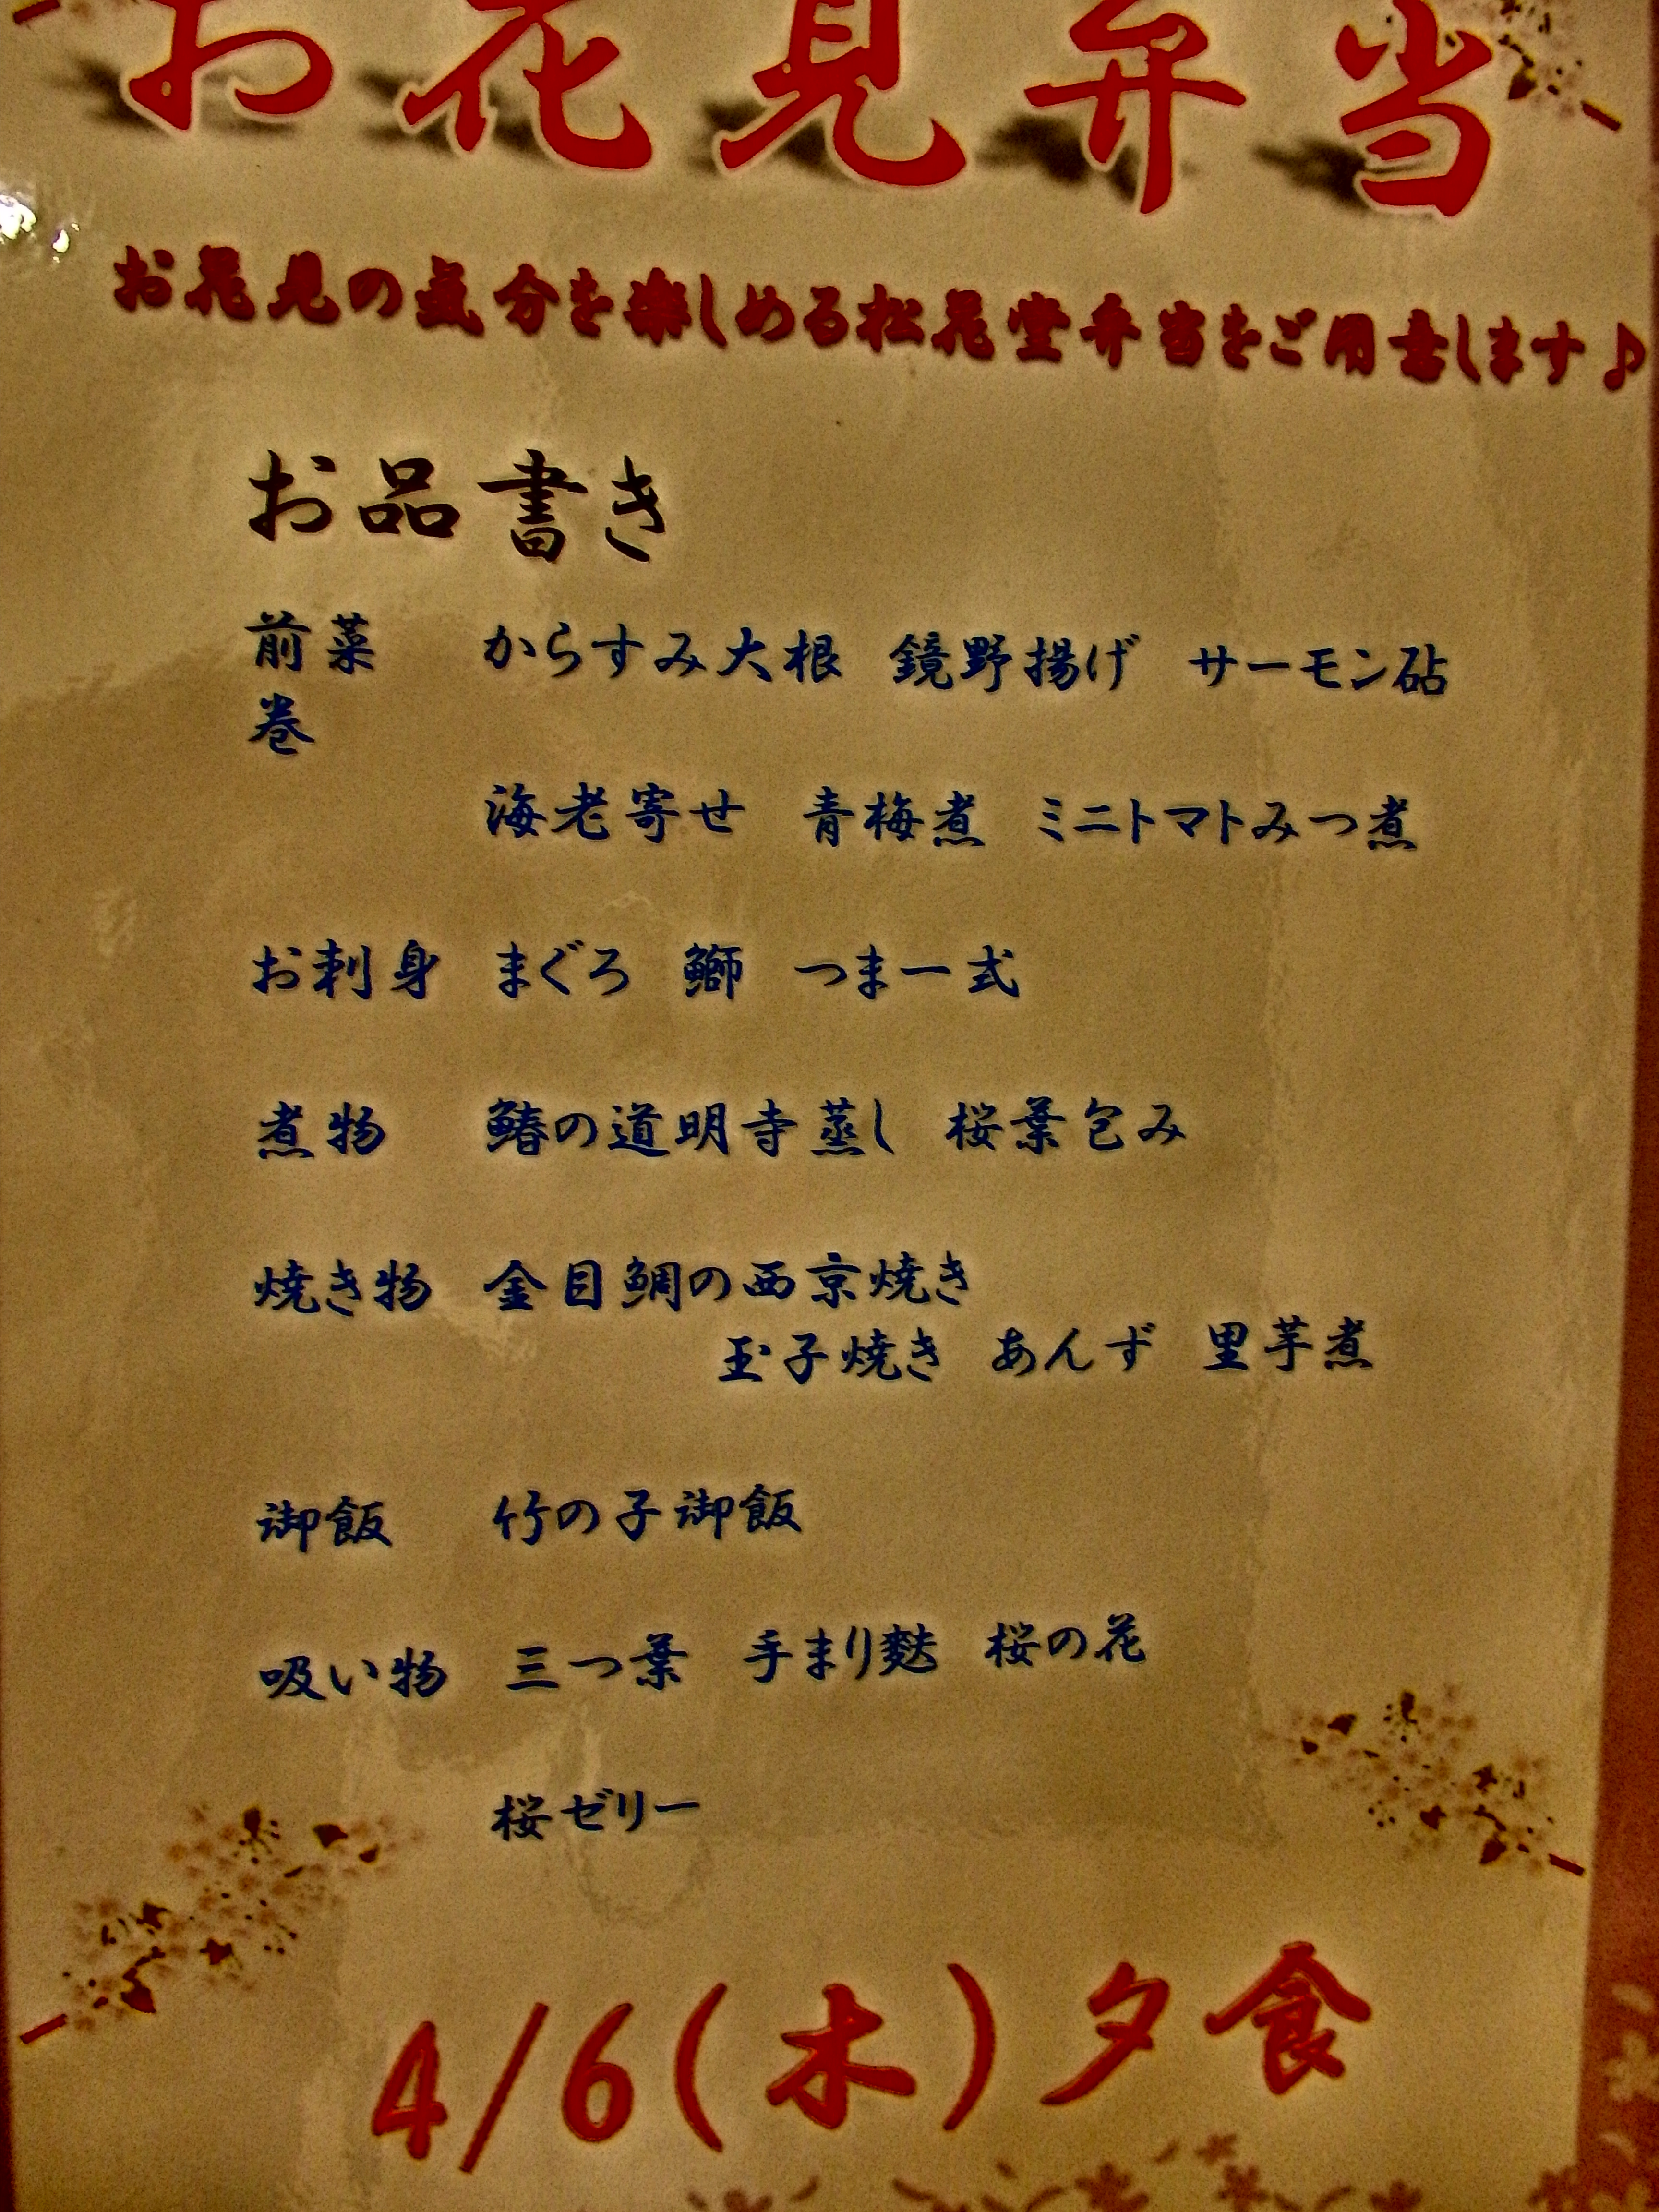 お花見弁当
お花見の気分を楽しめる松花堂弁当をご用意します♪
お品書き
前菜 からすみ大根 鏡野揚げ サーモン砧
巻
海老寄せ 青梅煮 ミニトマトみつ煮
お刺身 まぐろ 鰤 つま一式
煮物 鰆の道明寺蒸し 桜葉包み
焼き物 金目鯛の西京焼き
玉子焼き あんず 里芋煮
御飯 竹の子御飯
吸い物 三つ葉 手まり麩 桜の花
桜ゼリー
4/6(木)夕食